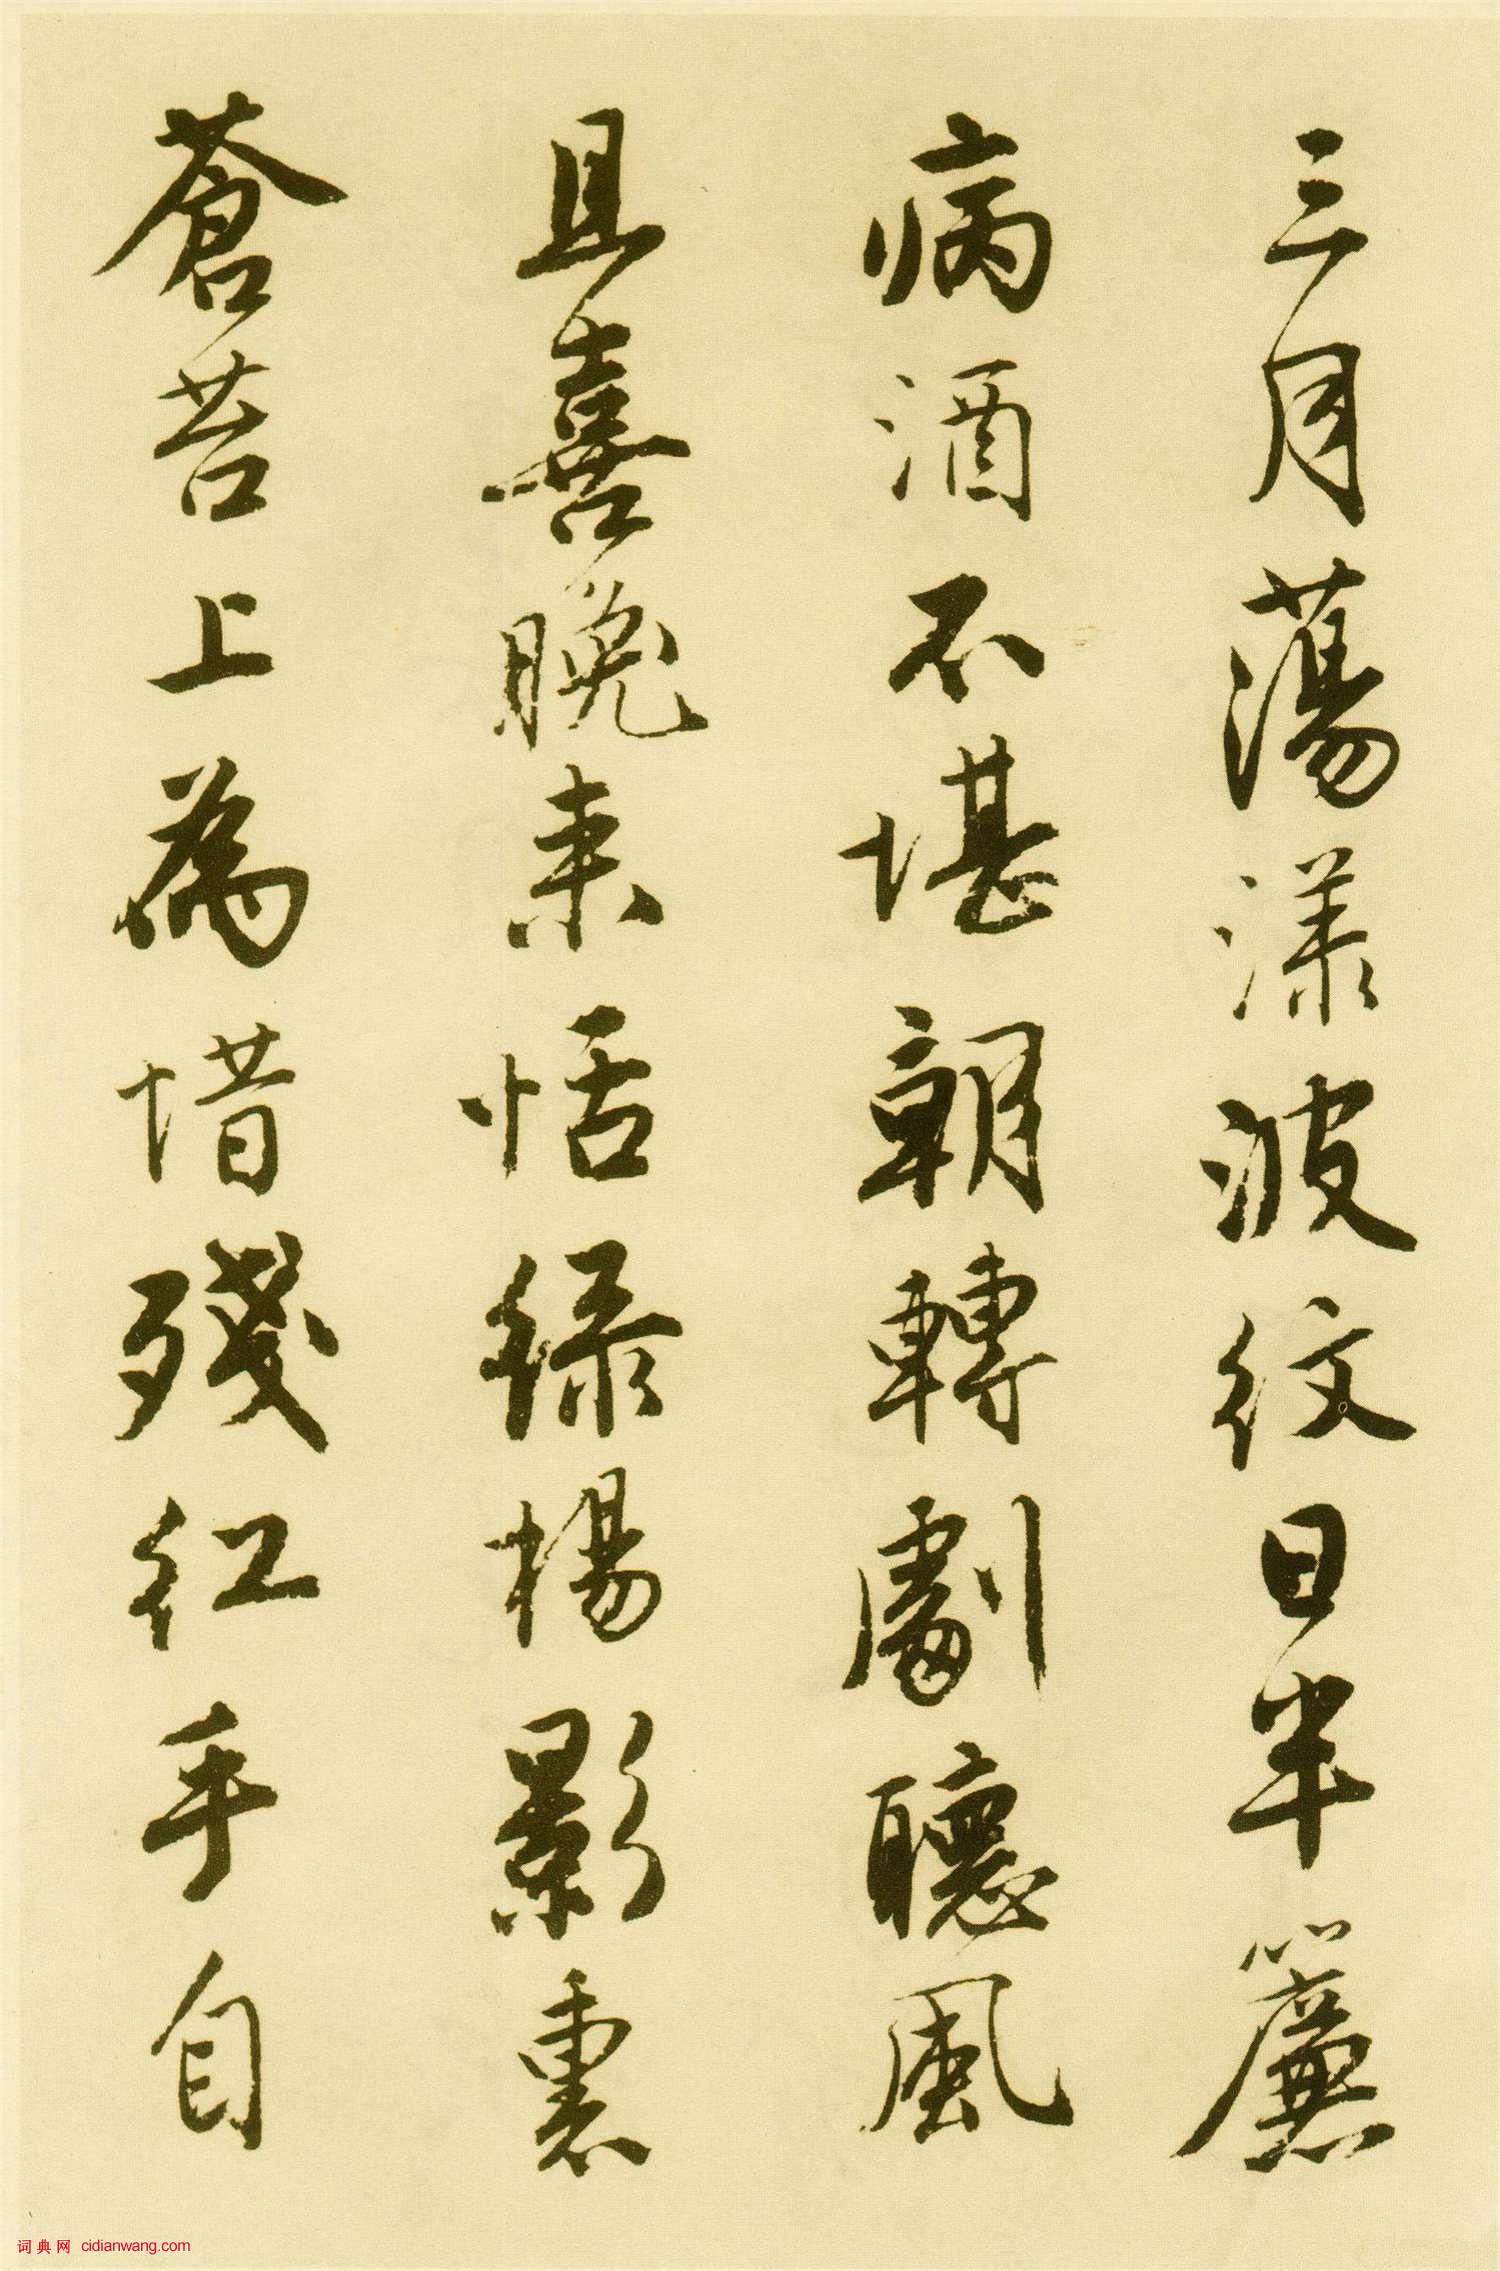 三月蕩漾波紋日半簾
病酒不堪朝轉劇聽風
且喜晚来恬綠楊影裏
蒼苔上為惜殘紅手自
词典网 cidianwang.com